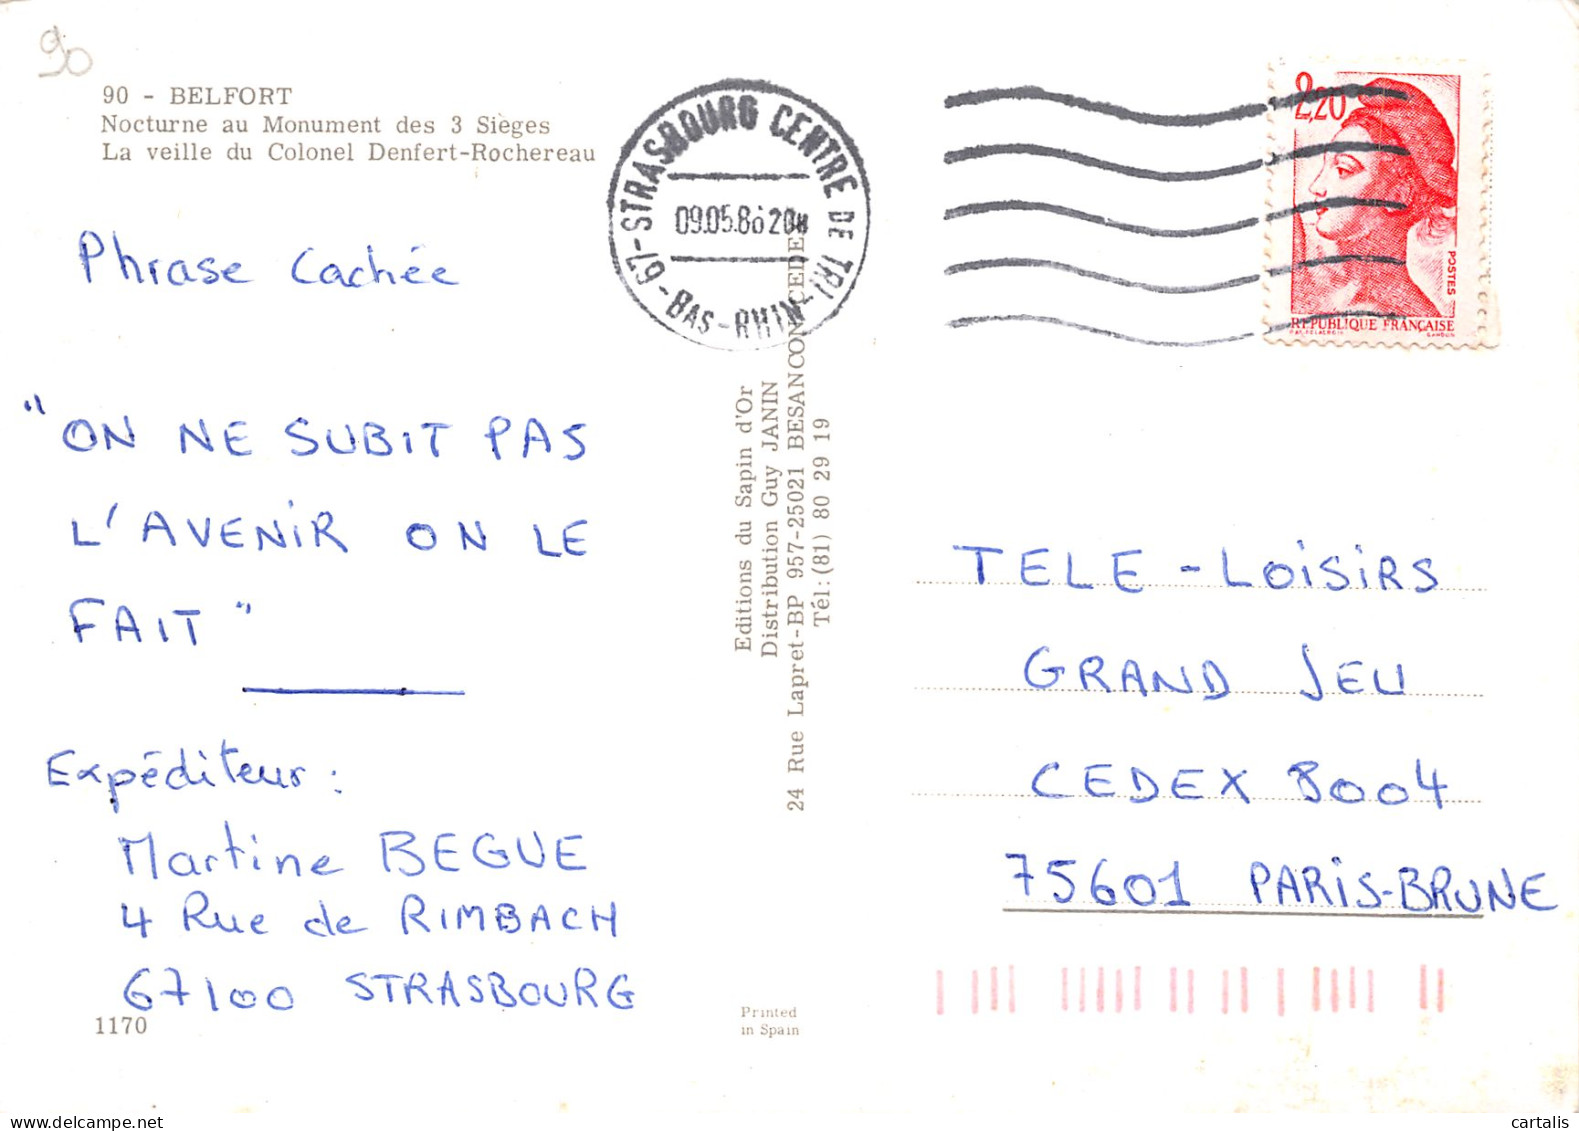 90
90 - BELFORT
Nocturne au Monument des 3 Sièges
La veille du Colonel Denfert-Rochereau
Phrase Cachée
"ON NE SUBIT PAS
L'AVENIR ON LE
FAIT"
Expéditeur :
Martine BEGUE
4 Rue de RIMBACH
67100 STRASBOURG
1170
67-STRASBOURG CENTRE DE TRI-
BAS-RHIN
09.05.86 20H
Editions du Sapin d'Or
Distribution Guy JANIN
24 Rue Lapret-BP 957-25021 BESANCON CEDEX
Tél:(81) 80 29 19
Printed
in Spain
2,20
POSTES
RÉPUBLIQUE FRANÇAISE
GANDON
TELE-LOiSiRS
GRAND JEU
CEDEX 8004
75601 PARiS-BRUNE
cartalis
www.delcampe.net